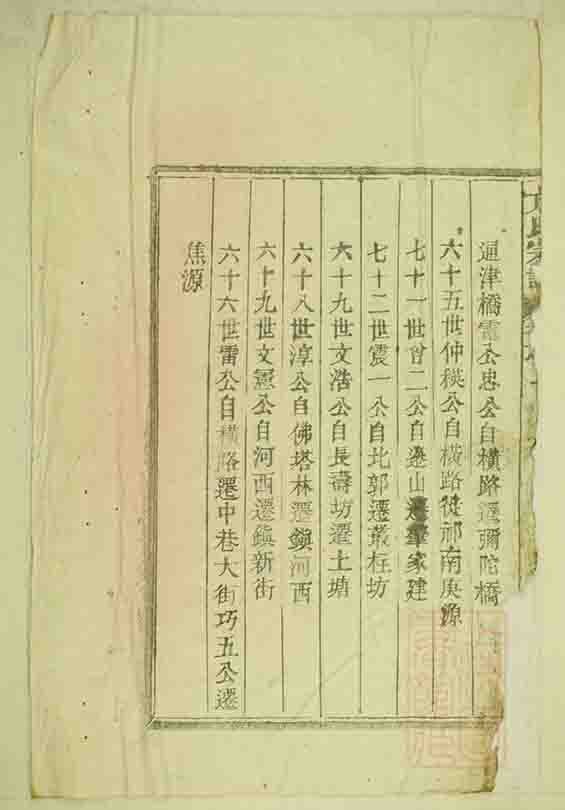 通津橋電公忠公自橫路遷彌陀橋
六十五世仲秧公自橫路徙祁南庚源
七十一世曾二公自遼山遷畢家建
七十二世震一公自北郭遷叢枉坊
六十九世文浩公自長壽坊遷上塘
六十八世淳公自佛塔林遷鎭河西
六十九世文憲公自河西遷鎭新街
六十六世雷公自橫路遷中巷大街巧五公遷
焦源